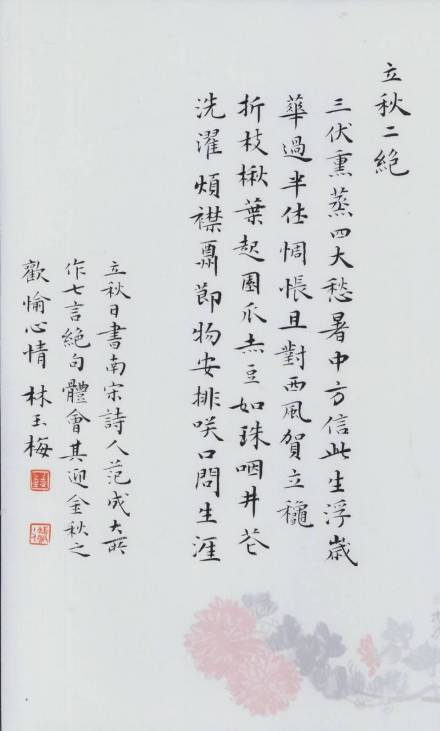 立秋二絕
三伏熏蒸四大愁暑中方信此生浮歲
華過半休惆悵且對西風賀立穐
折枝楸葉起園瓜赤豆如珠咽井花
洗濯煩襟酬節物安排咲口問生涯
立秋日書南宋詩人范成大所
作七言絕句體會其迎金秋之
歡愉心情 林玉梅